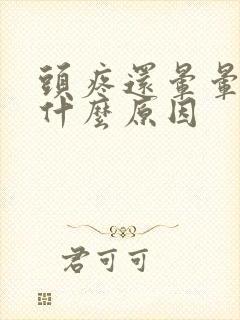 頭疼還暈暈
什麼原因
君可可